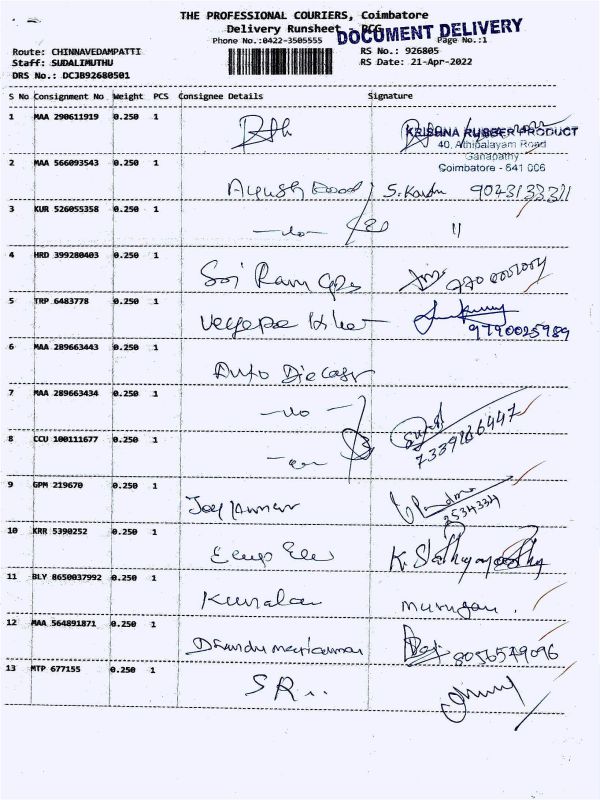 THE PROFESSIONAL COURIERS, Coimbatore
Delivery Runsheet - PCG
DOCUMENT DELIVERY
Phone No.:0422-3505555
Page No.:1
Route: CHINNAVEDAMPATTI
RS No.: 926805
Staff: SUDALIMUTHU
RS Date: 21-Apr-2022
DRS No.: DCJB92680501
S No Consignment No Weight PCS Consignee Details Signature
1 MAA 290611919 0.250 1
KRISHNA RUBBER PRODUCT
40, Athipalayam Road
Ganapathy
Coimbatore - 641 006
2 MAA 566093543 0.250 1
Ayush
3 KUR 526055358 0.250 1
-do- 11
4 HRD 399280403 0.250 1
Sri Ram
5 TRP 6483778 0.250 1
9790025989
6 MAA 289663443 0.250 1
Auto Diecast
7 MAA 289663434 0.250 1
-do-
7339166447
8 CCU 100111677 0.250 1
9 GPM 219670 0.250 1
Jay Kumar
2534334
10 KRR 5390252 0.250 1
K. Sathyamoorthy
11 BLY 8650037992 0.250 1
murugan.
12 MAA 564891871 0.250 1
8056579096
13 MTP 677155 0.250 1
S R ..